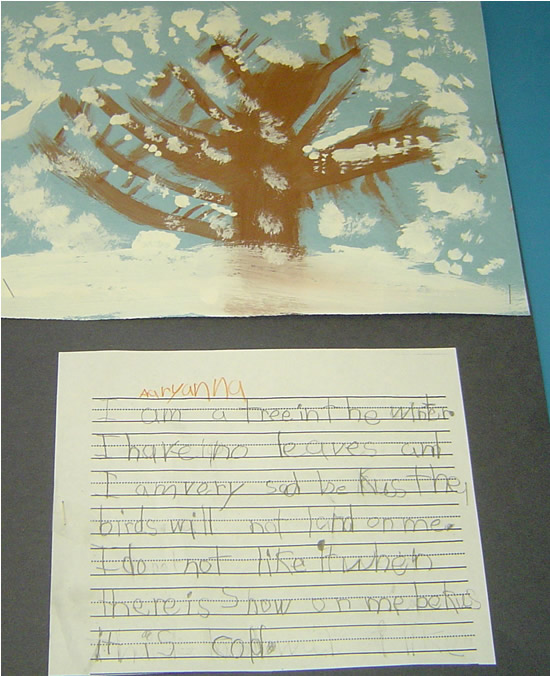 Aaryanna
I am a tree in the winter.
I have no leaves and
I am very sad be kuss the
birds will not land on me.
I do not like it when
there is snow on me bekus
it is cold.